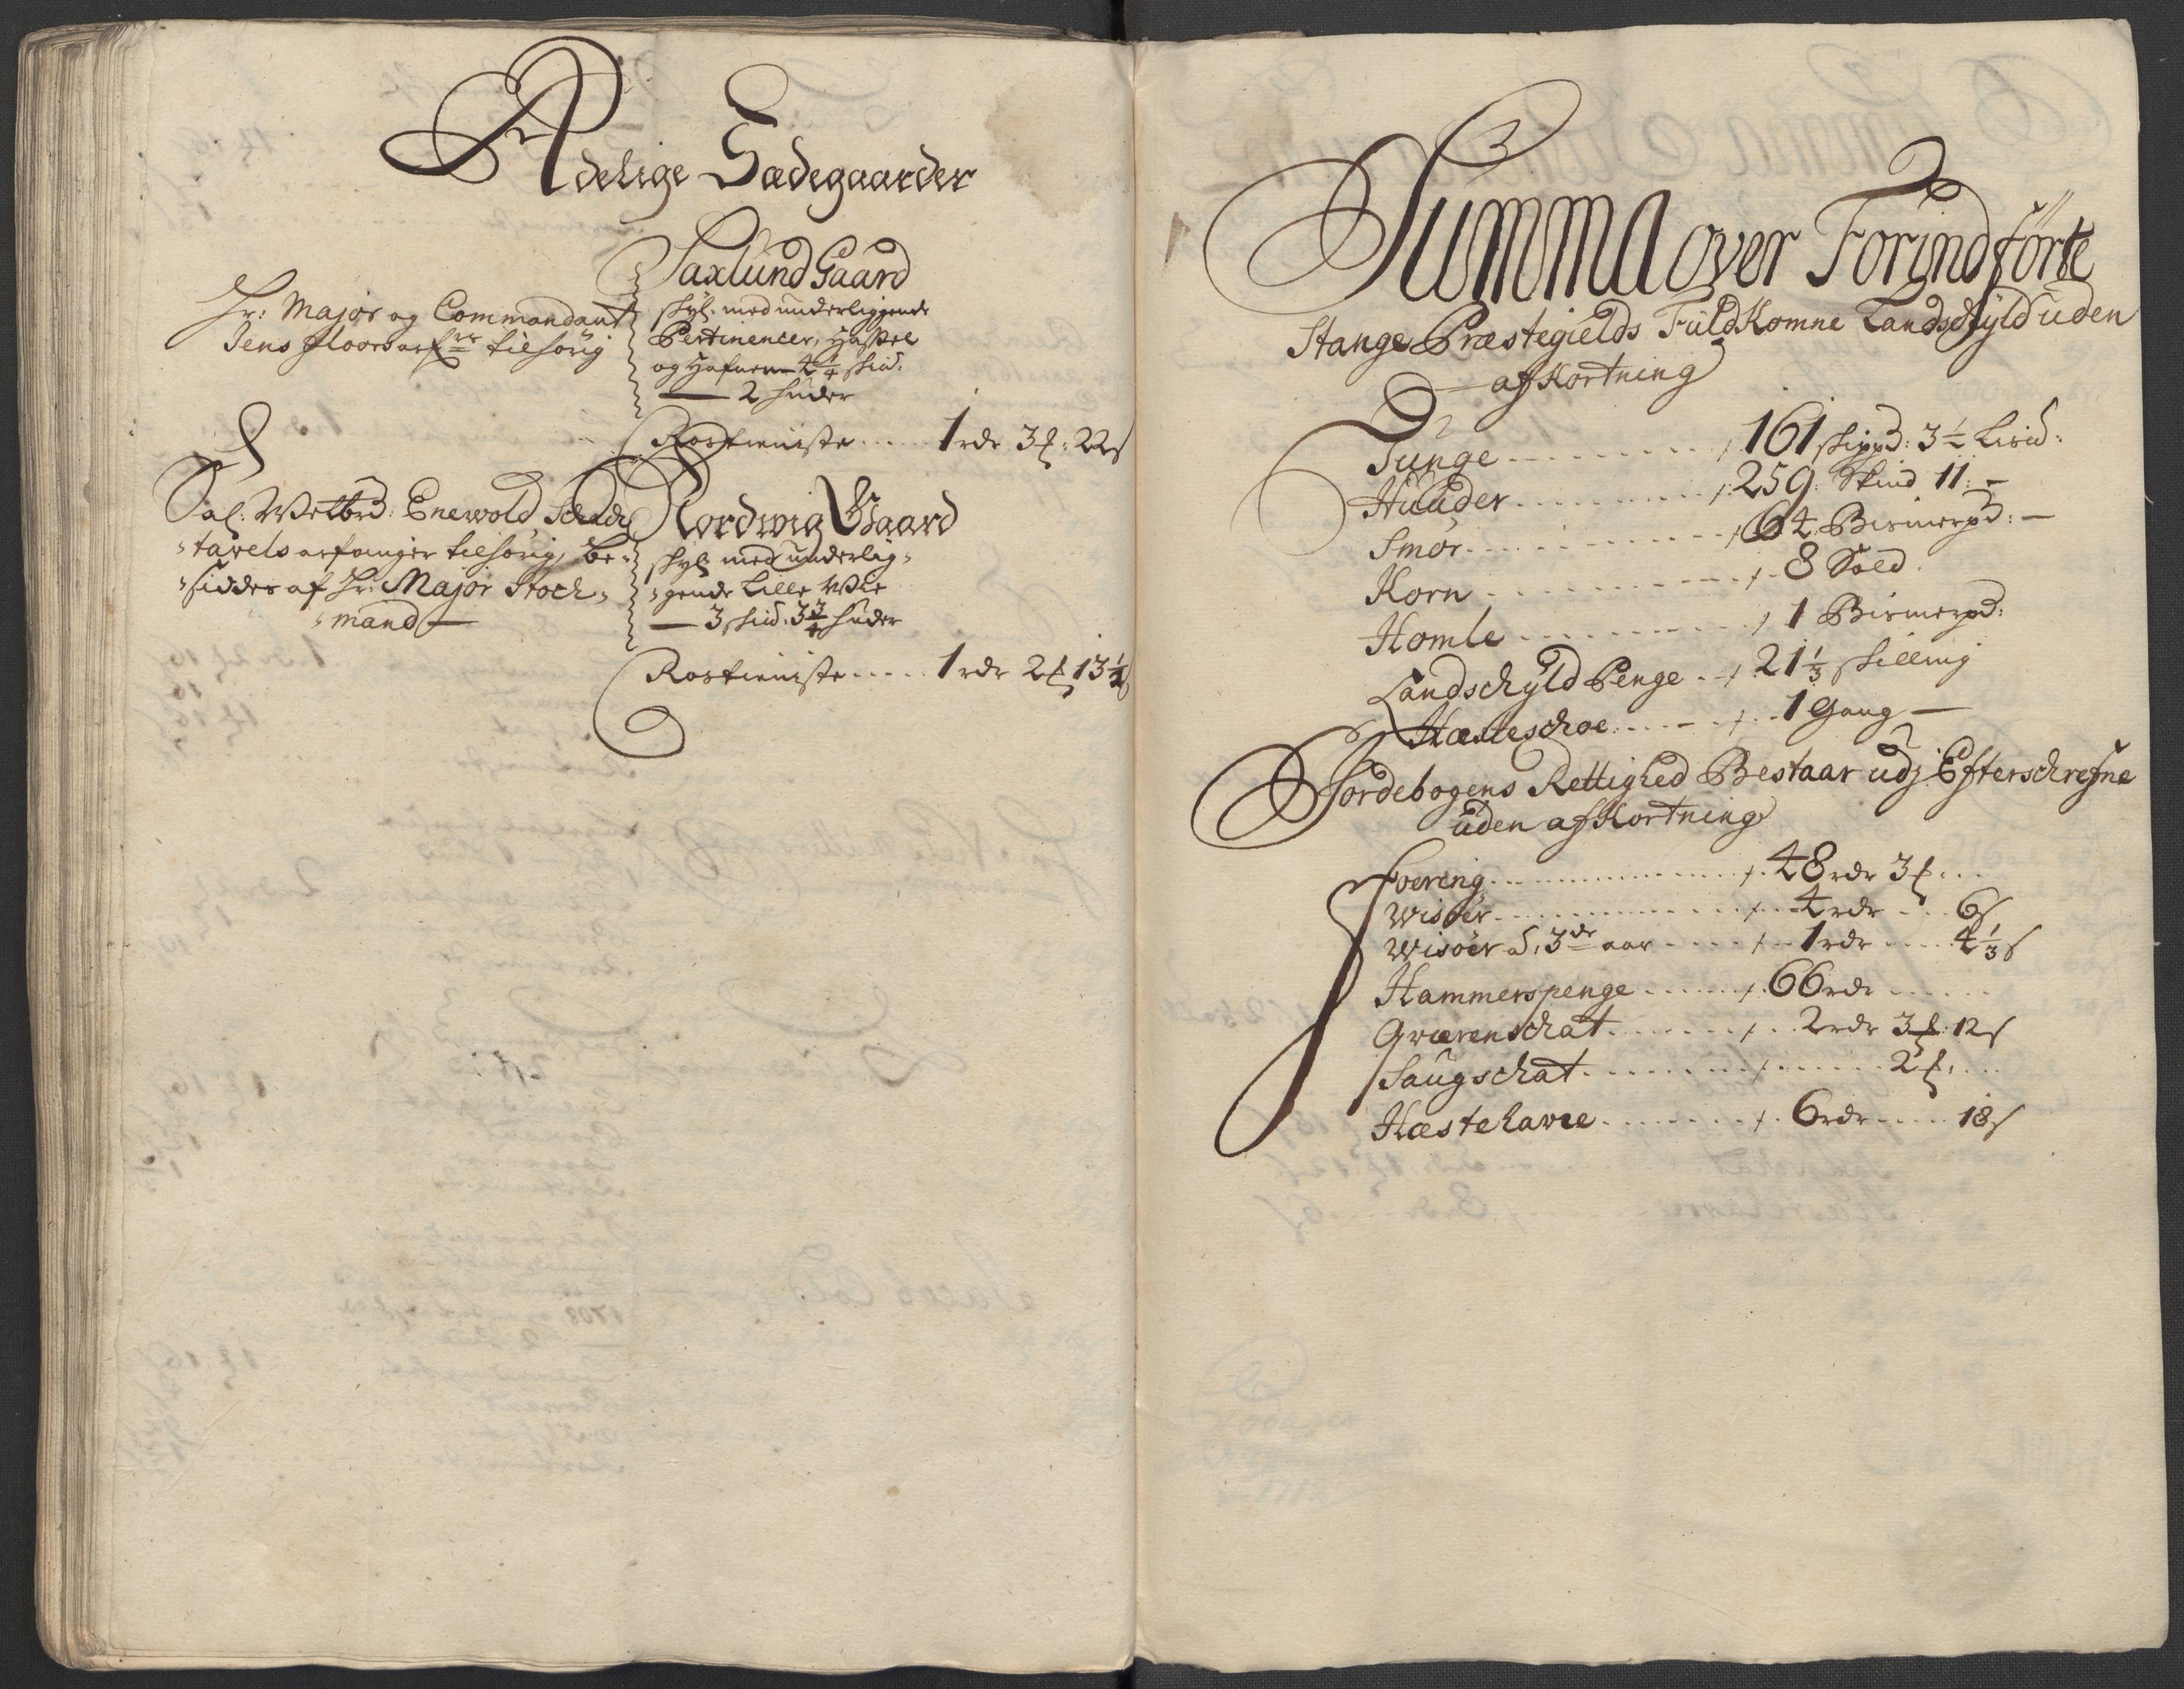 Adelige Sædegaarder
Saxlund Gaard
Hr: Major og Commandant
Jens arf tilhörig
skyl. med underliggende
Pertinencier,
og 4 1/4 skid.
— 2 huder
Rostieniste ..... 1 rdr 3 ß: 22 s
Sal: Welbrd: Enewold
-tavels arfvinger tilhörig, be-
-siddes af Hr: Major Stock-
-mand —
Nordwig Gaard
skyl. med underlig-
-gende Lille Wie
— 3 skid. 3 3/4 huder
Rostieniste ..... 1 rdr 2 ß 13 1/2 s
Summa over Forindförte
Stange Præstegields Fuldkomne Landschyld uden
afkortning
Tunge ......... 161 skippd: 3 1/2 Lisid:
Huuder ......... 259: Skind 11: -
Smör ......... 64 Bismerpd: —
Korn ......... 8 Sold.
Homle ......... 1 Bismerpd:
Landschyld Penge .. 21 1/3 skilling
Hæsteschoe ..... 1 Gang —
Jordebogens Rettighed Bestaar udj Efterschrefne
uden afkortning
Foering ......... 48 rdr 3 ß ...
Wisöer ......... 4 rdr ... 6 s
Wisöer d. 3de aar ..... 1 rdr ..... 4 1/3 s
Hammerspenge ...... 66 rdr ......
Qværenschat ....... 2 rdr 3 ß: 12 s
Saugschat ......... 2 ß ...
Hæstehavre ....... 6 rdr .... 18 s